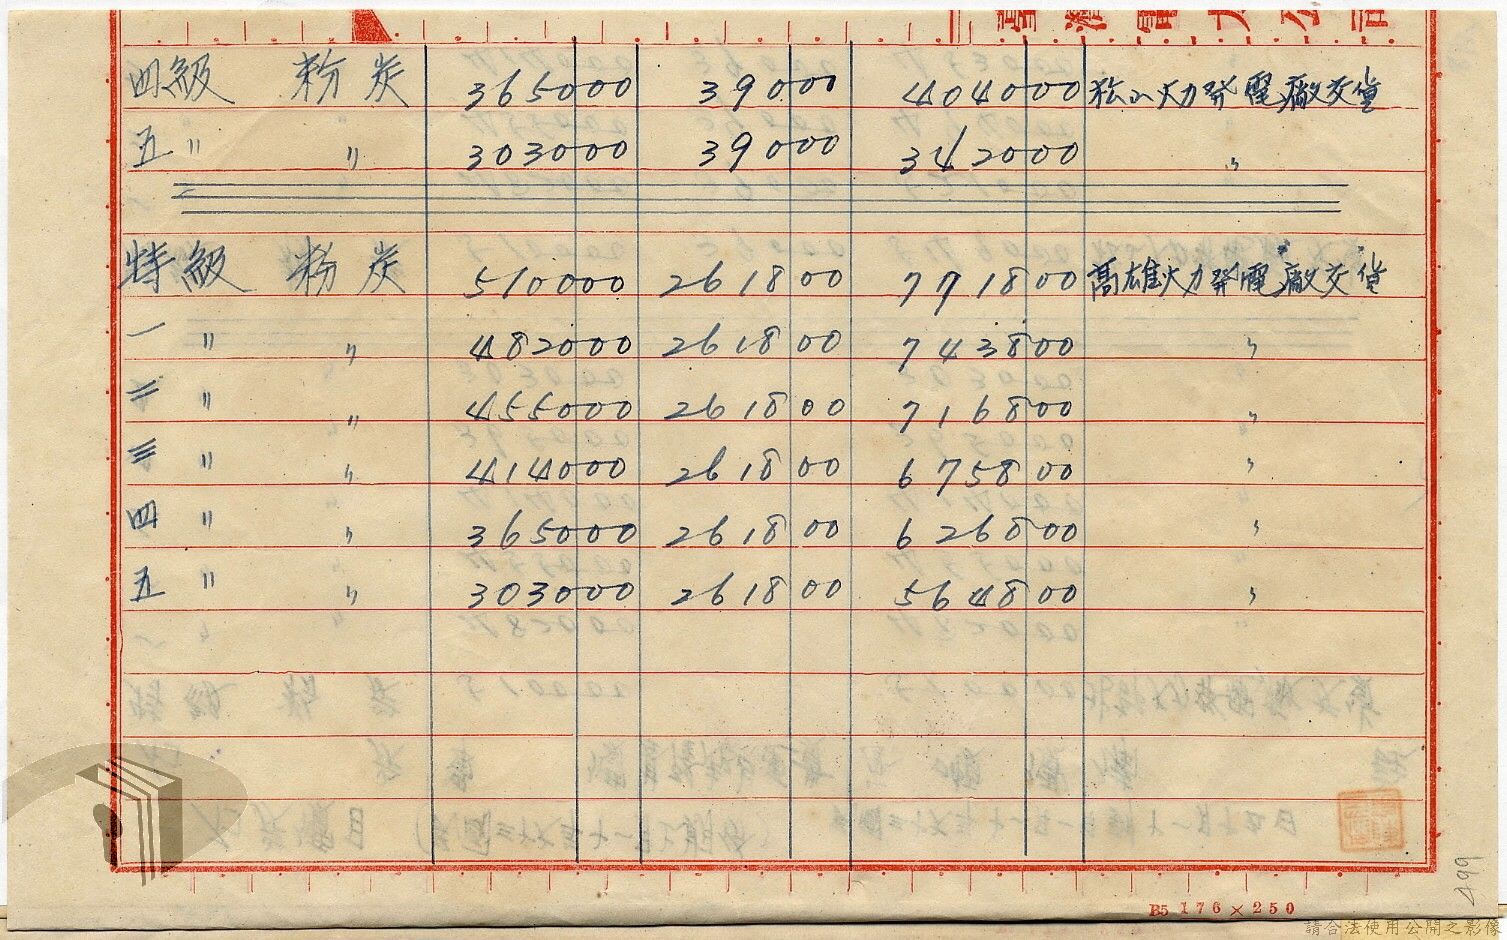 臺灣電力公司
四級 粉炭 365000 39000 404000 松山火力發電廠交貨
五〃 〃 303000 39000 342000 〃
特級 粉炭 510000 261800 771800 高雄火力發電廠交貨
一〃 〃 482000 261800 743800 〃
二〃 〃 455000 261800 716800 〃
三〃 〃 414000 261800 675800 〃
四〃 〃 365000 261800 626800 〃
五〃 〃 303000 261800 564800 〃
B5 176×250
499
請合法使用公開之影像